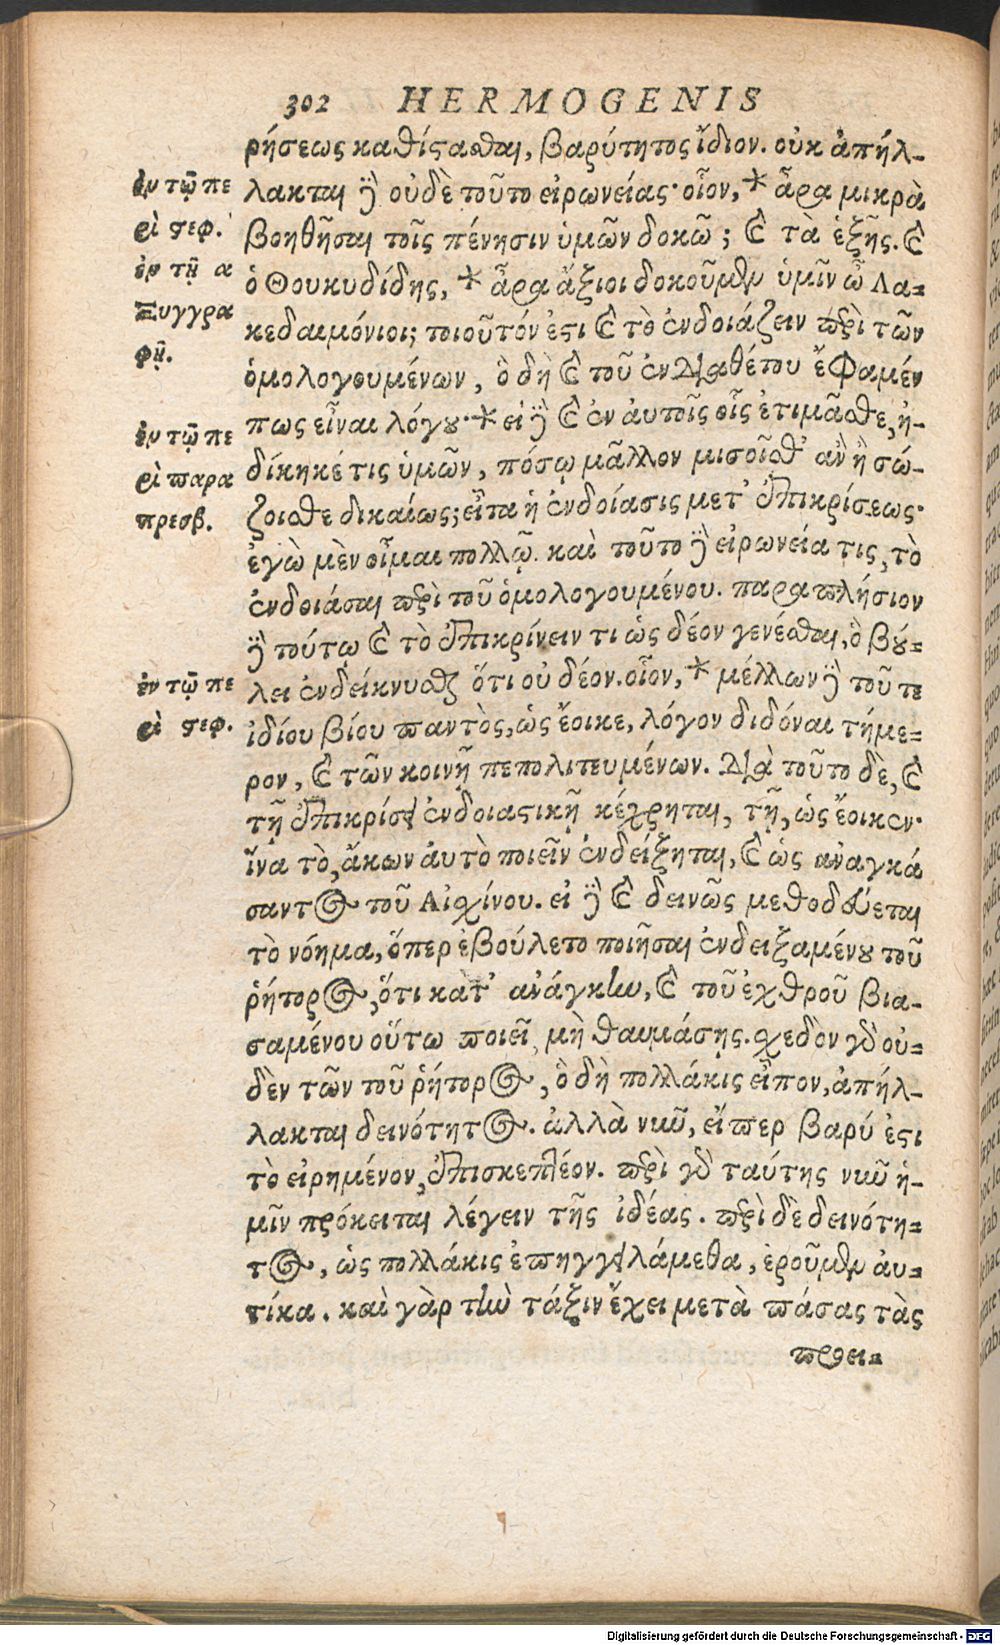 302 HERMOGENIS
ρήσεως καθίστασθαι, βαρύτητος ἴδιον. οὐκ ἀπήλ-
ἐν τῷ πε
λακται γὰρ οὐδὲ τοῦτο εἰρωνείας· οἷον, * ἆρα μικρὰ
ρὶ στεφ.
βοηθῆσαι τοῖς πένησιν ὑμῶν δοκῶ; καὶ τὰ ἑξῆς. καὶ
ἐν τῇ α
ὁ Θουκυδίδης, * ἆρα ἄξιοι δοκοῦμεν ὑμῖν ὦ Λα-
Ξυγγρα
κεδαιμόνιοι; τοιοῦτόν ἐστι καὶ τὸ ἐνδοιάζειν περὶ τῶν
φῇ.
ὁμολογουμένων, ὃ δὴ καὶ τοῦ ἐνδιαθέτου ἔφαμέν
πως εἶναι λόγου· * εἰ γὰρ καὶ ἐν αὐτοῖς οἷς ἐτιμᾶσθε, ἠ-
ἐν τῷ πε
δίκηκέ τις ὑμῶν, πόσῳ μᾶλλον μισοῖσθ' ἂν ἢ σώ-
ρὶ παρα
ζοισθε δικαίως; εἶτα ἡ ἐνδοίασις μετ' ἐπικρίσεως·
πρεσβ.
ἐγὼ μὲν οἶμαι πολλῷ. καὶ τοῦτο γὰρ εἰρωνεία τις, τὸ
ἐνδοιάσαι περὶ τοῦ ὁμολογουμένου. παραπλήσιον
γὰρ τούτῳ καὶ τὸ ἐπικρίνειν τι ὡς δέον γενέσθαι, ὃ βού-
ἐν τῷ πε
λει ἐνδείκνυσθαι ὅτι οὐ δέον. οἷον, * μέλλων γὰρ τοῦ τε
ρὶ στεφ.
ἰδίου βίου παντὸς, ὡς ἔοικε, λόγον διδόναι τήμε-
ρον, καὶ τῶν κοινῇ πεπολιτευμένων. διὰ τοῦτο δὲ, καὶ
τῇ ἐπικρίσει ἐνδοιαστικῇ κέχρηται, τῇ, ὡς ἔοικεν·
ἵνα τὸ, ἄκων αὐτὸ ποιεῖν ἐνδείξηται, καὶ ὡς ἀναγκά
σαντος τοῦ Αἰσχίνου. εἰ γὰρ καὶ δεινῶς μεθοδεύεται
τὸ νόημα, ὅπερ ἐβούλετο ποιῆσαι ἐνδειξαμένου τοῦ
ῥήτορος, ὅτι κατ' ἀνάγκην, καὶ τοῦ ἐχθροῦ βια-
σαμένου οὕτω ποιεῖ, μὴ θαυμάσῃς. σχεδὸν γὰρ οὐ-
δὲν τῶν τοῦ ῥήτορος, ὃ δὴ πολλάκις εἶπον, ἀπήλ-
λακται δεινότητος. ἀλλὰ νῦν, εἴπερ βαρύ ἐστι
τὸ εἰρημένον, ἐπισκεπτέον. περὶ γὰρ ταύτης νῦν ἡ-
μῖν πρόκειται λέγειν τῆς ἰδέας. περὶ δὲ δεινότη-
τος, ὡς πολλάκις ἐπηγγειλάμεθα, ἐροῦμεν αὐ-
τίκα. καὶ γὰρ τὴν τάξιν ἔχει μετὰ πάσας τὰς
προει-
Digitalisierung gefördert durch die Deutsche Forschungsgemeinschaft - DFG